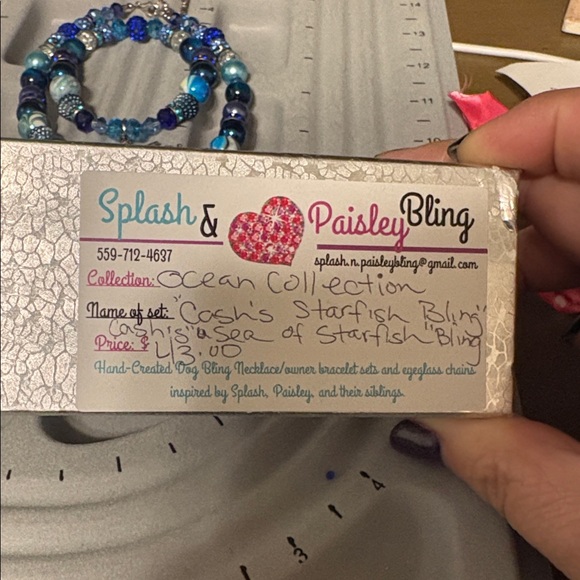 Splash & Paisley Bling
559-712-4637
splash.n.paisleybling@gmail.com
Collection: Ocean Collection
Name of set: "Cash's Starfish Bling"
Cash's "a Sea of Starfish "Bling
Price: $ 43.00
Hand-Created Dog Bling Necklace/owner bracelet sets and eyeglass chains
inspired by Splash, Paisley, and their siblings.
14
13
12
11
10
4
3